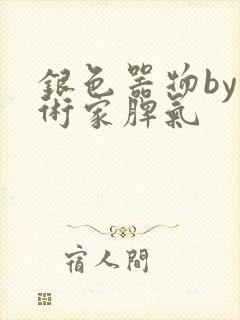 銀色器物by
術家脾氣
宿人間